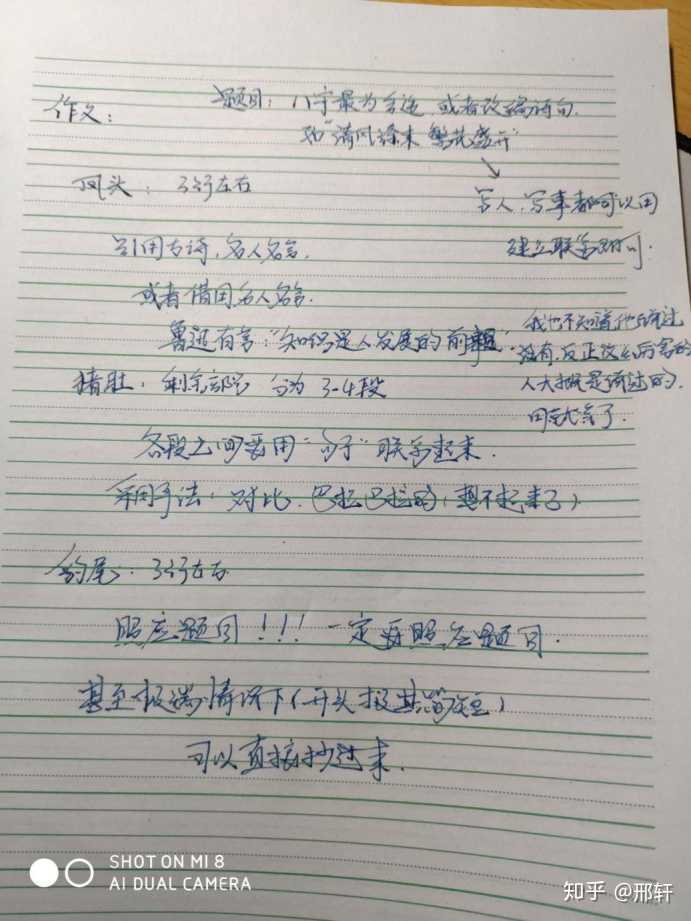 作文：
题目：八字最为合适，或者改编诗句，
如“清风徐来 繁花盛开”
凤头：3行左右
写人、写事都可以用
建立联系时
引用古诗，名人名言，
或者借用名人名言.
鲁迅有言：“知识是人发展的前
我也不知道他说过
没有，反正
人大概是说过的.
猪肚：剩余部分 分为 3-4段
各段之间要用“句子”联系起来.
采用手法：对比，巴拉巴拉的（想不起来了）
豹尾：3行左右
照应题目！！！一定要照应题目.
甚至极端情况下（开头极其简短）
可以直接抄过来.
SHOT ON MI 8
AI DUAL CAMERA
知乎 @邢轩